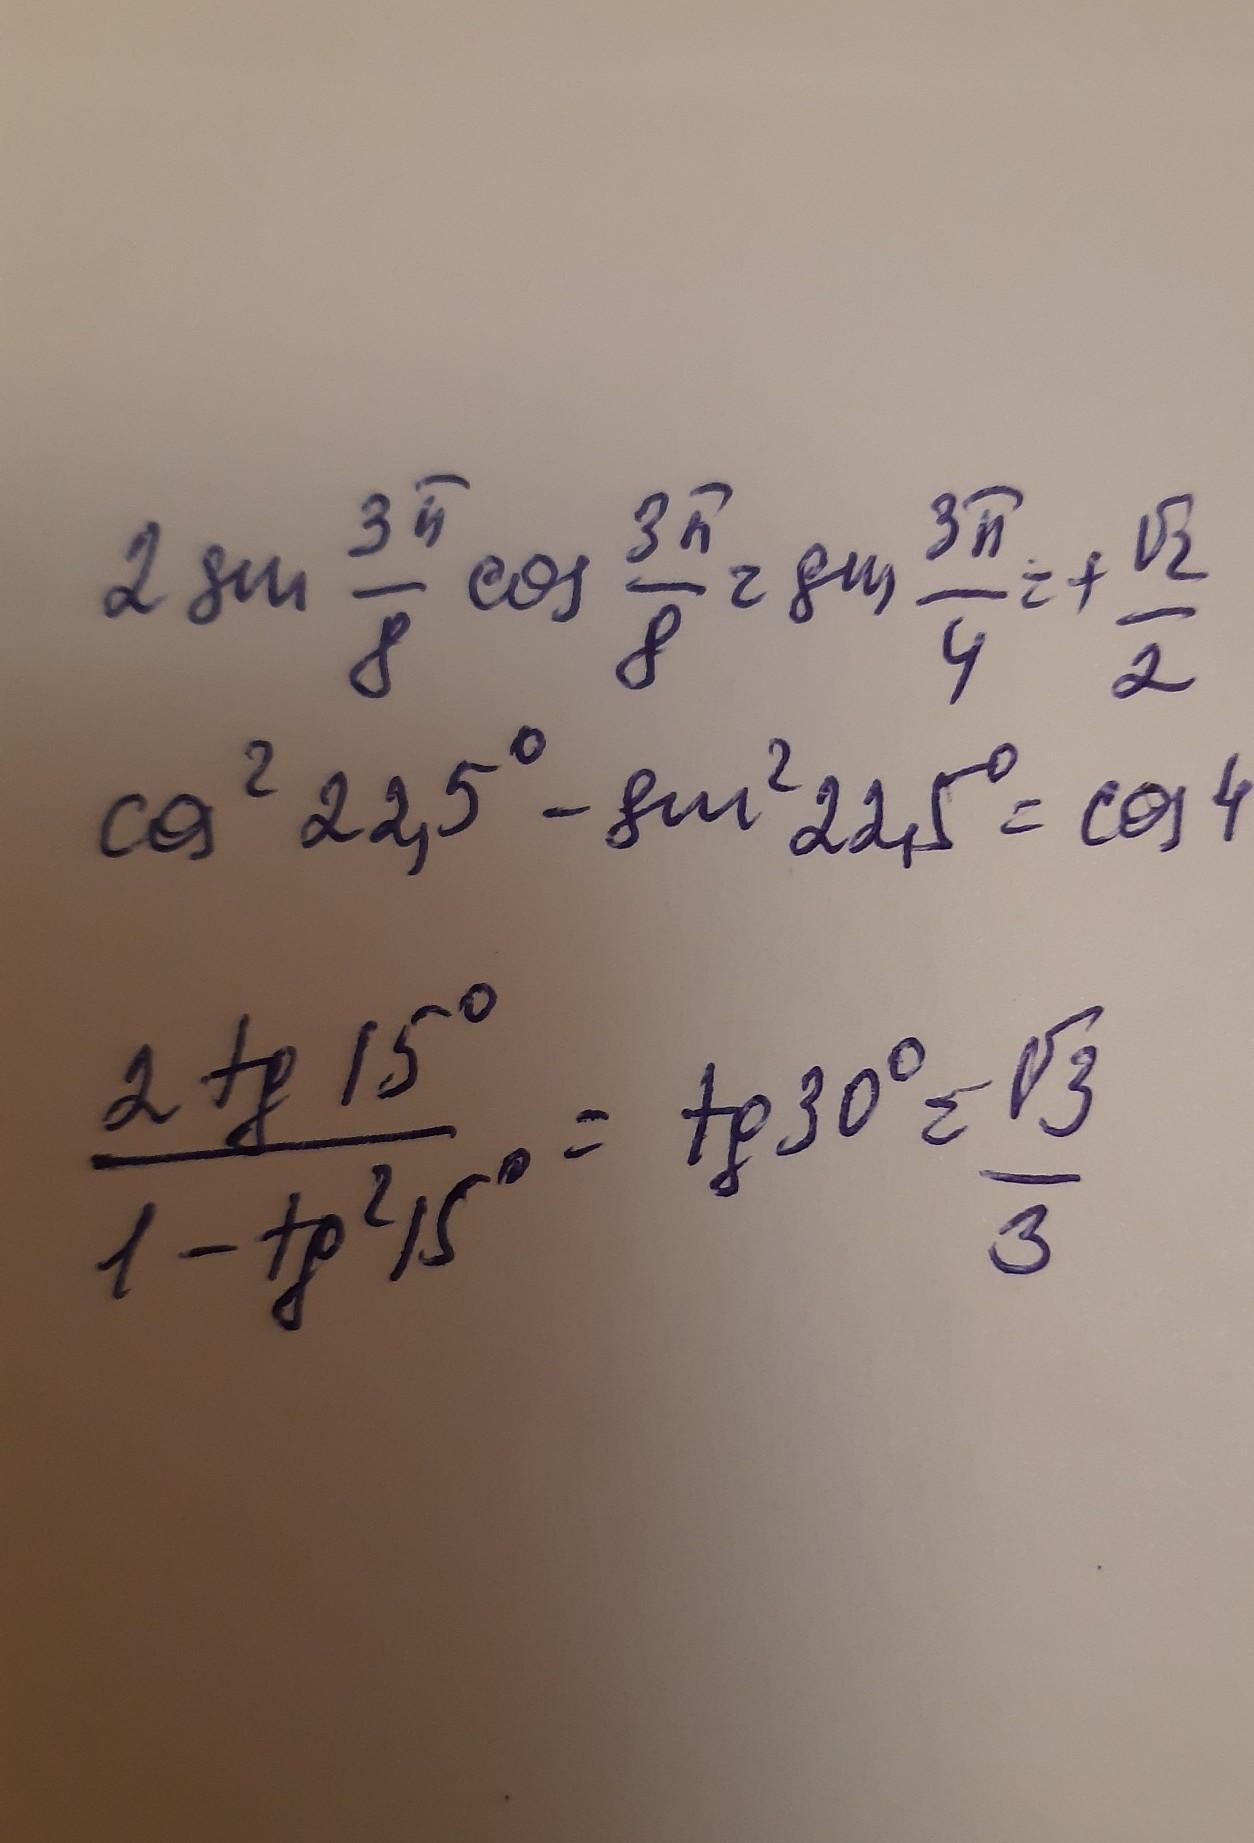 2 sin 3π/8 cos 3π/8 = sin 3π/4 = + √2/2
cos² 22,5° - sin² 22,5° = cos 4
2 tg 15° / 1 - tg² 15° = tg 30° = √3/3